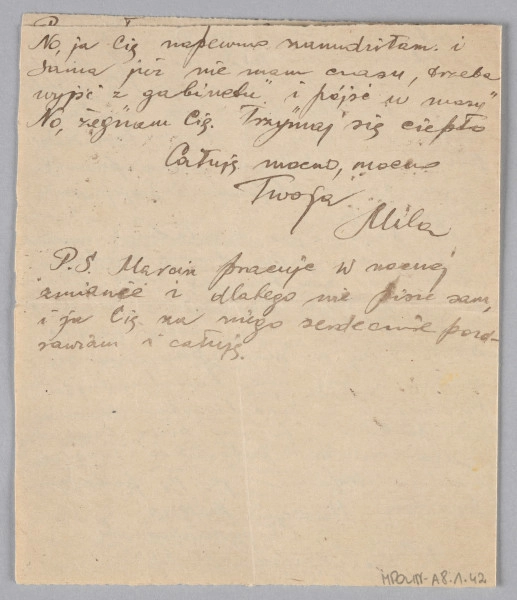 No, ja Cię napewno zanudziłam. i
sama już nie mam czasu, trzeba
wyjść z gabinetu" i pójść w masy"
No, żegnam Cię. Trzymaj się ciepło
Całuję mocno, mocno
Twoja
Mila
P.S. Marcin pracuje w nocnej
zmianie i dlatego nie pisze sam,
i ja Cię za niego serdecznie pozd-
rawiam i całuję.
MPOLIN-A8.1.42